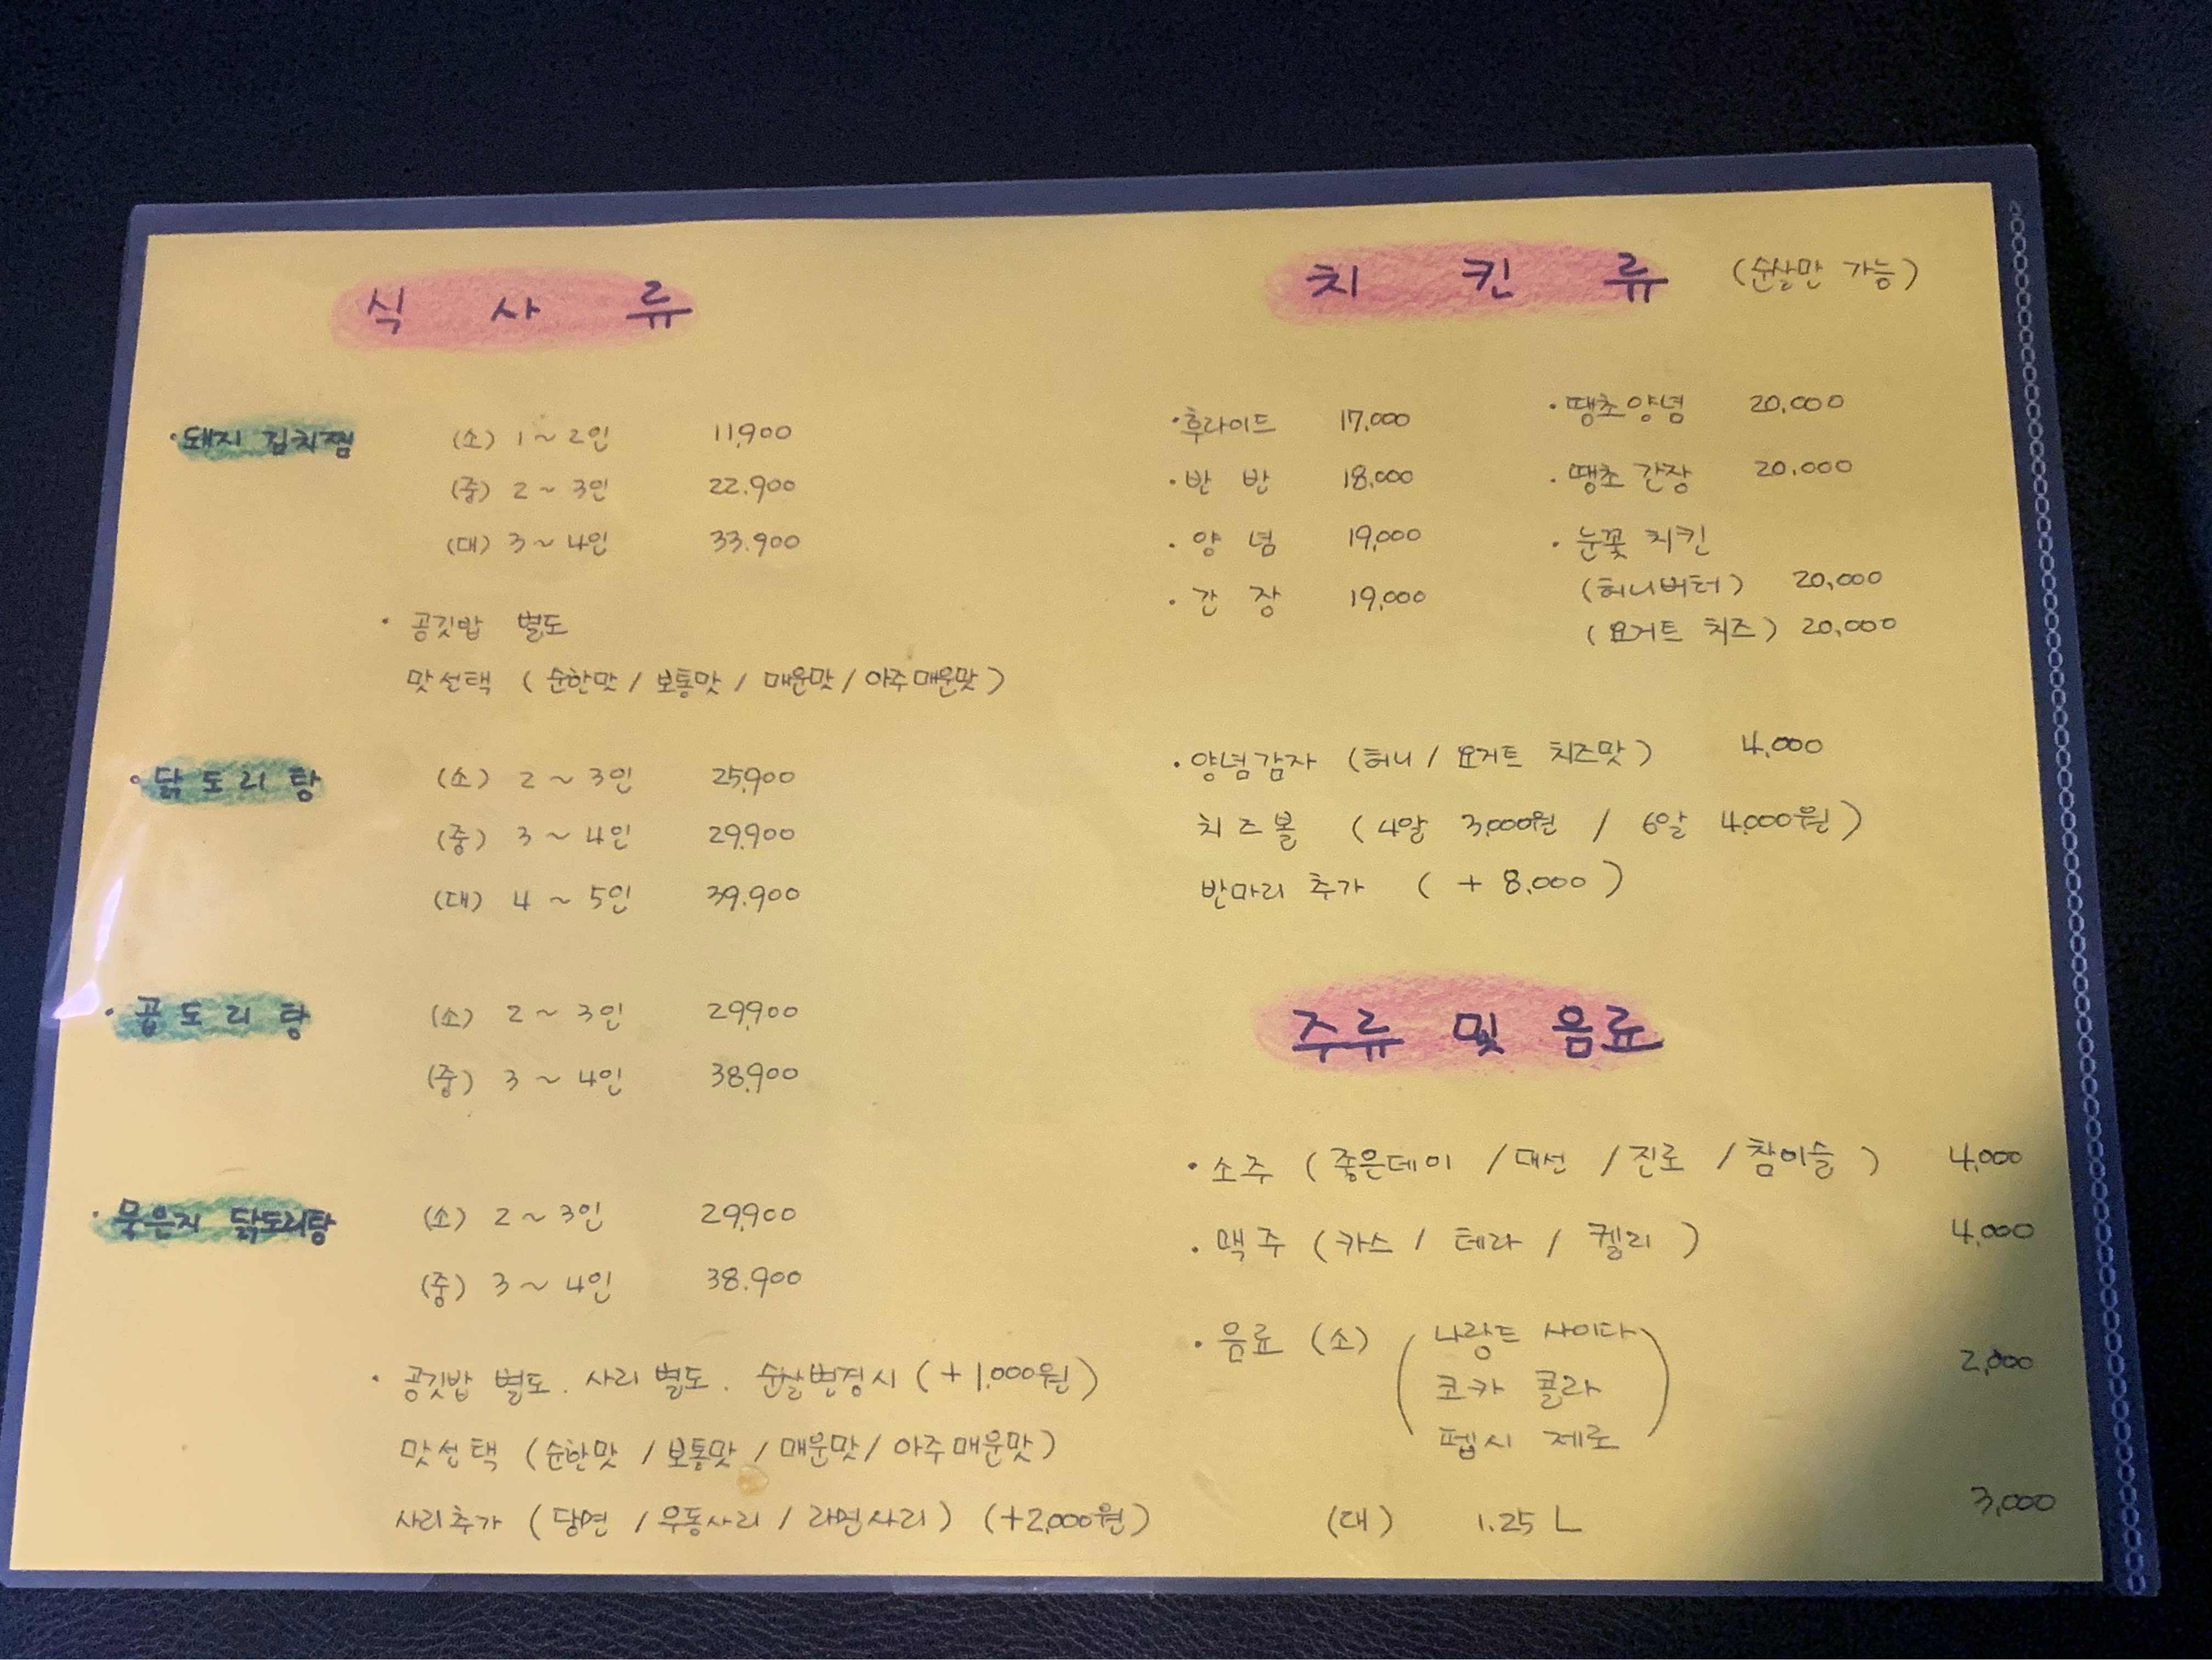 식 사 류
·돼지 김치찜 (소) 1~2인 11,900
(중) 2~3인 22.900
(대) 3~4인 33.900
· 공깃밥 별도
맛선택 (순한맛/보통맛/매운맛/아주매운맛)
·닭도리탕 (소) 2~3인 25,900
(중) 3~4인 29,900
(대) 4~5인 39.900
·곱도리탕 (소) 2~3인 29,900
(중) 3~4인 38,900
·묵은지 닭도리탕 (소) 2~3인 29,900
(중) 3~4인 38.900
· 공깃밥 별도. 사리 별도. 순살변경시 (+1,000원)
맛선택 (순한맛/보통맛/매운맛/아주매운맛)
사리추가 (당면/우동사리/라면사리) (+2,000원)
치 킨 류 (순살만 가능)
·후라이드 17,000
·반 반 18,000
·양 념 19,000
·간 장 19,000
·땡초양념 20,000
·땡초 간장 20,000
·눈꽃 치킨
(허니버터) 20,000
(요거트 치즈) 20,000
·양념감자 (허니/요거트 치즈맛) 4,000
치즈볼 (4알 3,000원 / 6알 4,000원)
반마리 추가 (+8,000)
주류 및 음료
·소주 (좋은데이/대선/진로/참이슬) 4,000
·맥주 (카스/테라/켈리) 4,000
·음료 (소) (나랑드 사이다
코카 콜라 2,000
펩시 제로)
(대) 1.25 L 3,000